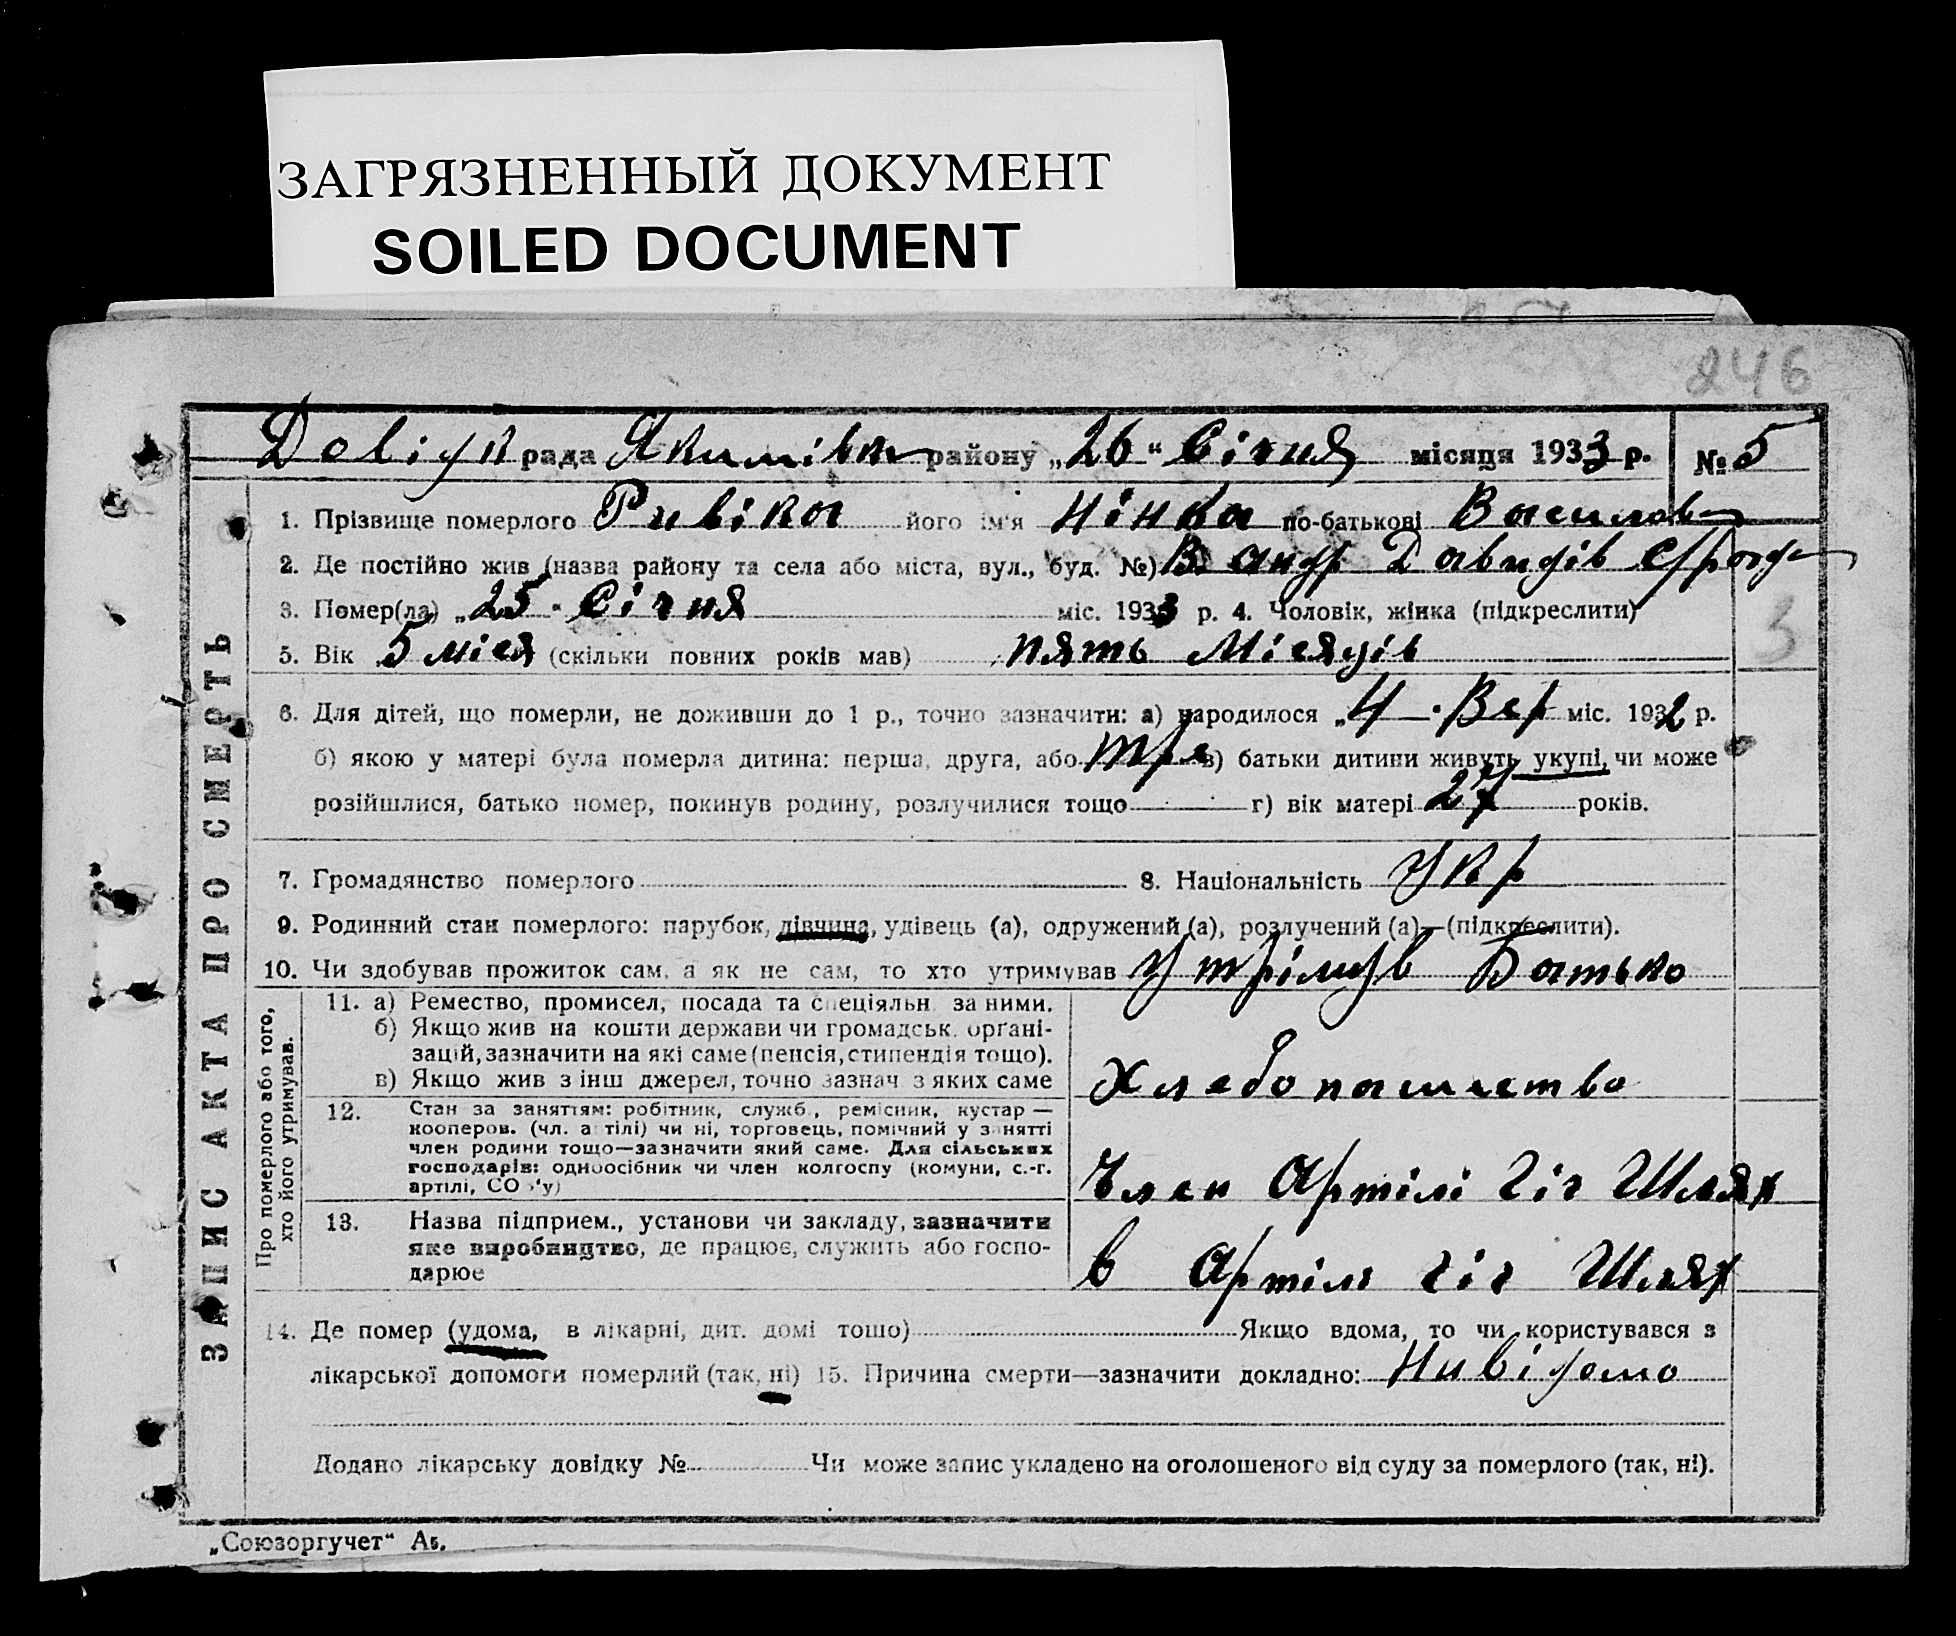 ЗАГРЯЗНЕННЫЙ ДОКУМЕНТ
SOILED DOCUMENT
246
рада Якимівк району „26“ Січня місяця 1933 р. № 5
1. Прізвище померлого його ім'я Нінка по-батькові Василов
2. Де постійно жив (назва району та села або міста, вул., буд. №) Давидів
3. Помер(ла) „25“ Січня міс. 1933 р. 4. Чоловік, жінка (підкреслити)
3
5. Вік 5 міся (скільки повних років мав) пять Місяців
6. Для дітей, що померли, не доживши до 1 р., точно зазначити: а) народилося „4“ Вер міс. 1932 р.
б) якою у матері була померла дитина: перша, друга, або тре в) батьки дитини живуть укупі, чи може
розійшлися, батько помер, покинув родину, розлучилися тощо г) вік матері 27 років.
7. Громадянство померлого 8. Національність Укр
9. Родинний стан померлого: парубок, дівчина, удівець (а), одружений (а), розлучений (а)—(підкреслити).
10. Чи здобував прожиток сам, а як не сам, то хто утримував Утрімув Батько
ЗАПИС АКТА ПРО СМЕРТЬ
Про померлого або того,
хто його утримував.
11. а) Ремество, промисел, посада та спеціяльн. за ними.
б) Якщо жив на кошти держави чи громадськ. органі-
зацій, зазначити на які саме (пенсія, стипендія тощо).
в) Якщо жив з інш джерел, точно зазнач з яких саме
Хлебопашество
12. Стан за заняттям: робітник, служб., ремісник, кустар —
кооперов. (чл. артілі) чи ні, торговець, помічний у занятті
член родини тощо—зазначити який саме. Для сільських
господарів: одноосібник чи член колгоспу (комуни, с.-г.
артілі, СОЗ'у)
Член Артілі Шлях
13. Назва підприєм., установи чи закладу, зазначити
яке виробництво, де працює, служить або госпо-
дарює
в Артіль Шлях
14. Де помер (удома, в лікарні, дит. домі тощо) Якщо вдома, то чи користувався з
лікарської допомоги померлий (так, ні) 15. Причина смерти—зазначити докладно: Нивідомо
Додано лікарську довідку № Чи може запис укладено на оголошеного від суду за померлого (так, ні).
„Союзоргучет“